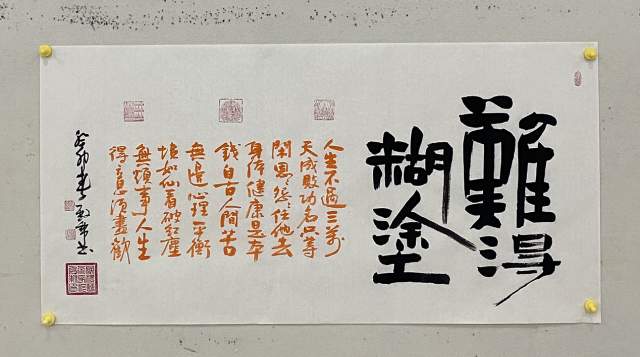 難得
糊塗
人生不過三万
天成敗功名只等
閑恩々怨々任他去
身体健康是本
錢自古人間苦
無邊心理平衡
境如仙看破紅塵
無煩事人生
得意須盡歡
癸卯春
书